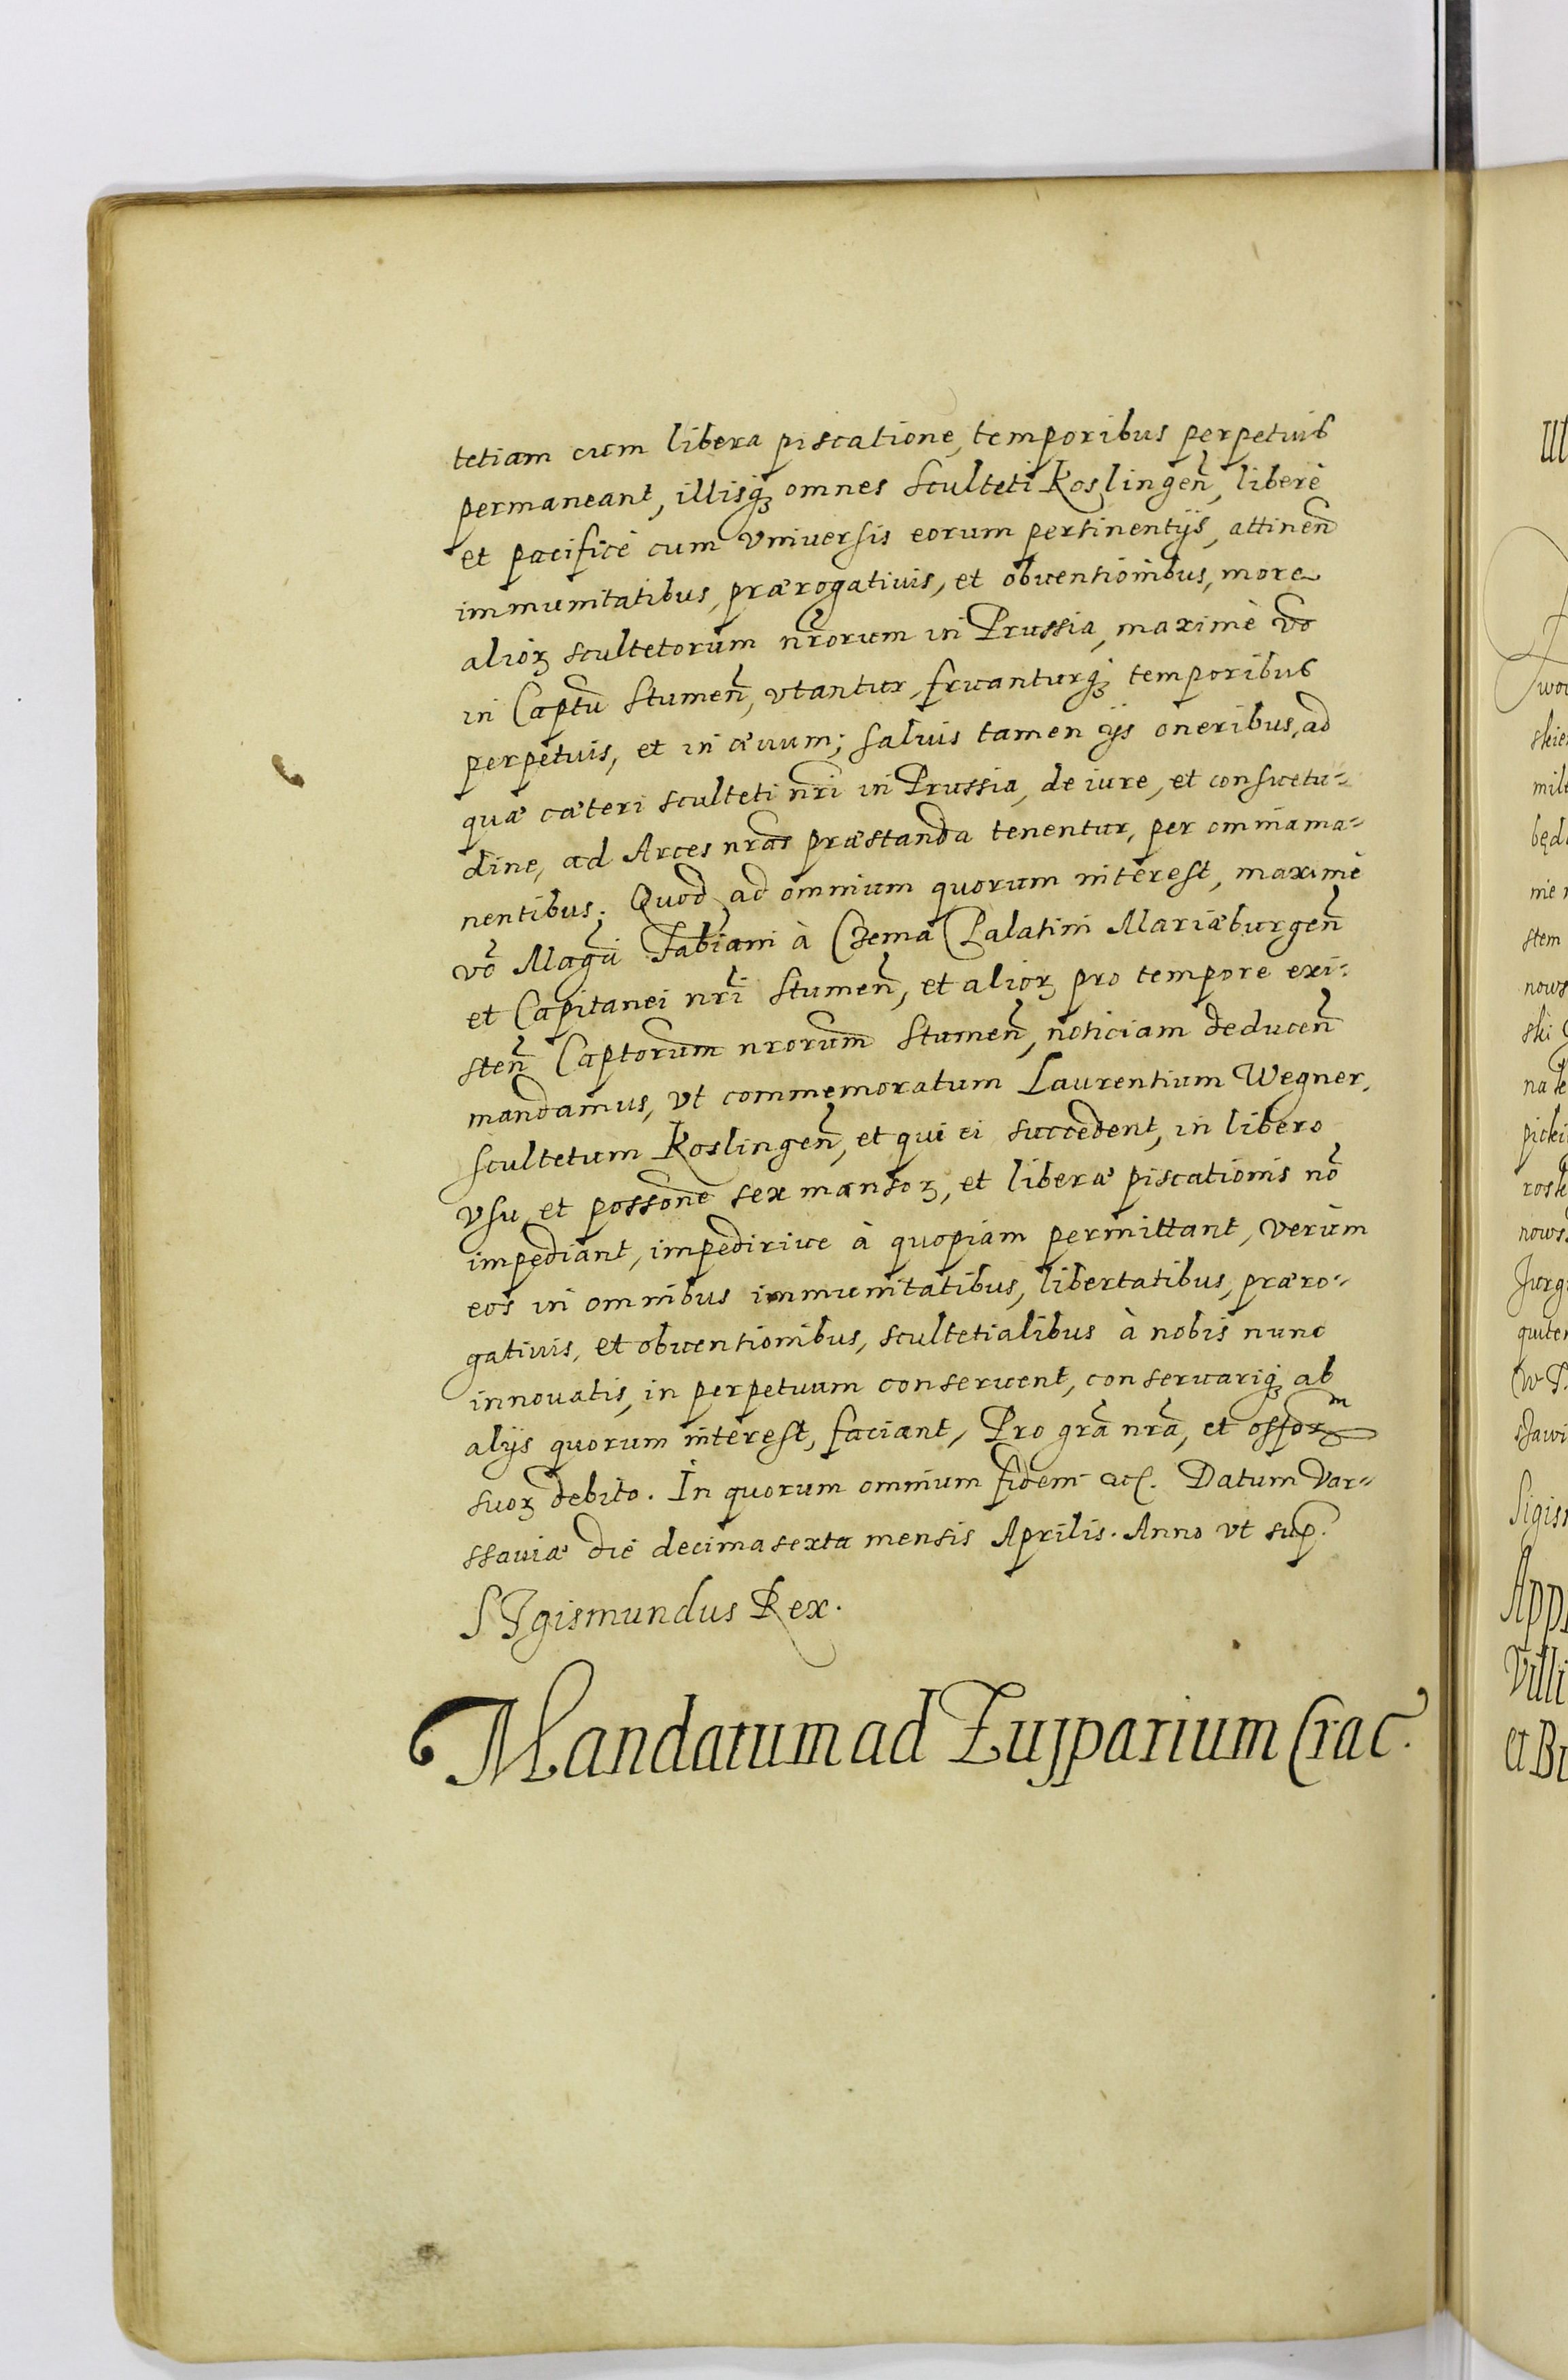 tetiam cum libera piscatione, temporibus perpetuis
permaneant, illisq₃ omnes Sculteti Koslingeñ, liberè
et pacificè cum vniuersis eorum pertinentijs, attineñ
immunitatibus, prærogatiuis, et obuentionibus, more
alioꝝ scultetorum nr̃orum in Prussia, maximè vo
in Captũ Stumeñ, vtantur, fruanturq₃ temporibus
perpetuis, et in æuum; saluis tamen ijs oneribus, ad
quæ cæteri sculteti nr̃i in Prussia, de iure, et consuetu=
dine, ad Arces nr̃as præstanda tenentur, per omnia ma=
nentibus. Quod ad omnium quorum interest, maximè
võ Magci Fabiani à Czema Palatini Mariæburgeñ
et Capitanei nr̃i Stumeñ, et alioꝝ pro tempore exi=
steñ Captorum nrorum Stumeñ, noticiam deduceñ
mandamus, vt commemoratum Laurentium Wegner,
scultetum Koslingeñ, et qui ei succedent, in libero
vsu et possone sex mansoꝝ, et liberæ piscationis nõ
impediant, impediriue à quopiam permittant, verùm
eos in omnibus immunitatibus, libertatibus, præro=
gatiuis, et obuentionibus, scultetialibus à nobis nunc
innouatis, in perpetuum conseruent, conseruariq₃ ab
alijs quorum interest, faciant, Pro grã nrã, et offoꝝm
suoꝝ debito. In quorum omnium fidem etc. Datum Var=
ssauiæ die decima sexta mensis Aprilis. Anno vt sup.
SIgismundus Rex.
Mandatum ad Zupparium Crac.